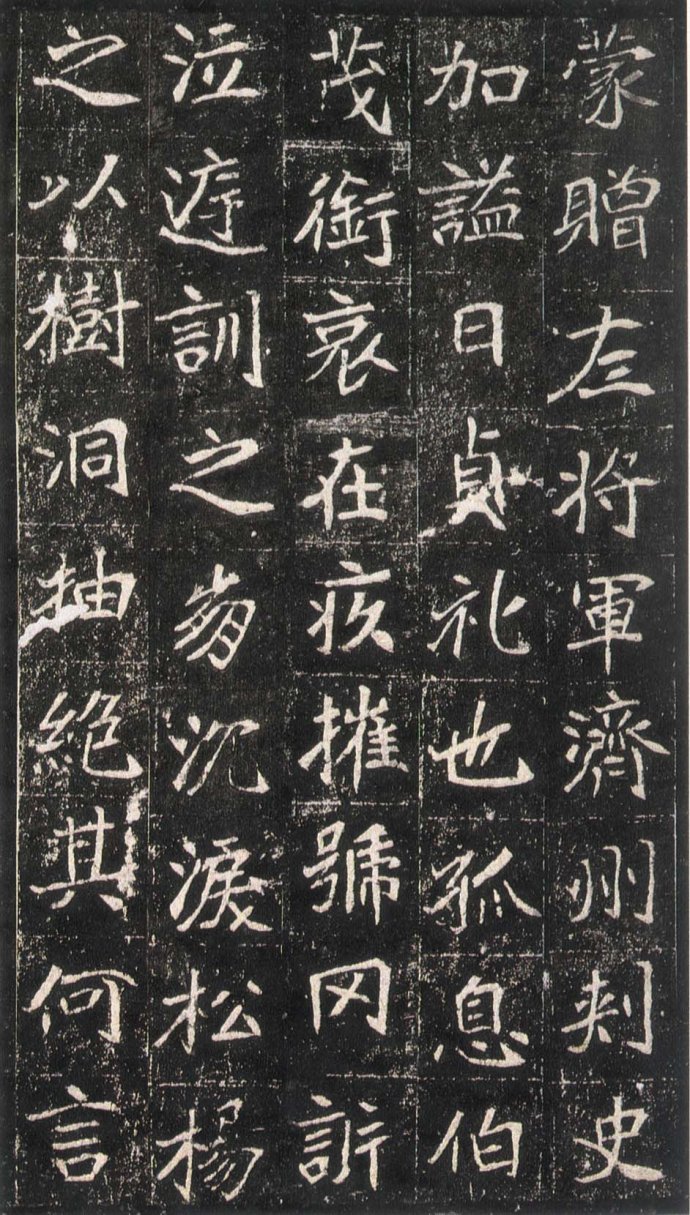 蒙贈左将軍濟州刺史
加謚曰貞礼也孤息伯
茂銜哀在疚摧號罔訴
泣庭訓之崩沉淚松楊
之以樹洞抽絕其何言